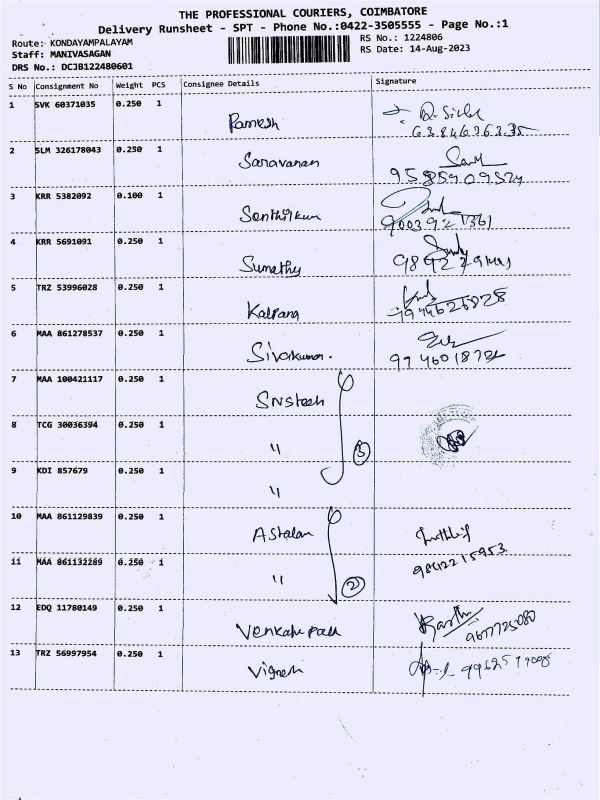 THE PROFESSIONAL COURIERS, COIMBATORE
Delivery Runsheet - SPT - Phone No.:0422-3505555 - Page No.:1
Route: KONDAYAMPALAYAM RS No.: 1224806
Staff: MANIVASAGAN RS Date: 14-Aug-2023
DRS No.: DCJB122480601
S No Consignment No Weight PCS Consignee Details Signature
1 SVK 60371035 0.250 1
Ramesh
2 SLM 326178043 0.250 1
Saravanan
3 KRR 5382092 0.100 1
Senthilkum
4 KRR 5691091 0.250 1
Sumathy
5 TRZ 53996028 0.250 1
Kalpana
6 MAA 861278537 0.250 1
Sivakumar.
7 MAA 100421117 0.250 1
SNStech
8 TCG 30036394 0.250 1
" 3
9 KDI 857679 0.250 1
"
10 MAA 861129839 0.250 1
Astalan
11 MAA 861132289 0.250 1 9842215953
" 2
12 EDQ 11780149 0.250 1
9677725080
13 TRZ 56997954 0.250 1
Vignesh